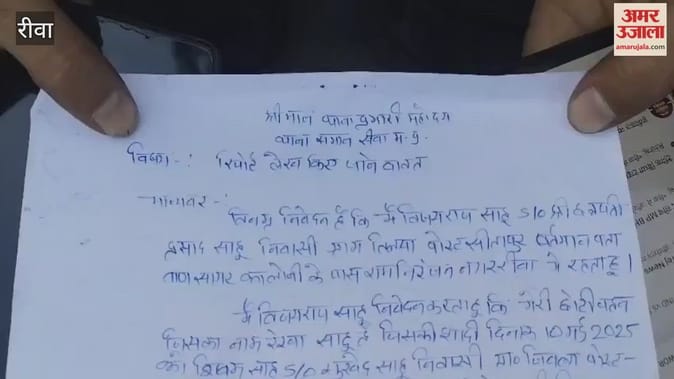 रीवा
अमर उजाला
amarujala.com
श्रीमान थाना प्रभारी महोदय
थाना समान रीवा म.प्र.
विषय:- रिपोर्ट लेख किए जाने बावत
मान्यवर:-
विनम्र निवेदन है कि मैं विजयराज साहू S/O श्री
प्रसाद साहू निवासी ग्राम पोस्ट सीतापुर वर्तमान पता
बाण सागर कालोनी के पास रामनिरंजन नगर रीवा में रहता हूं।
मैं विजयराज साहू निवेदन करता हूं कि मेरी छोटी बहन
जिसका नाम रेखा साहू है जिसकी शादी दिनांक 10 मई 2025
को शिवम साहू S/O साहू निवासी ग्रा० पोस्ट-